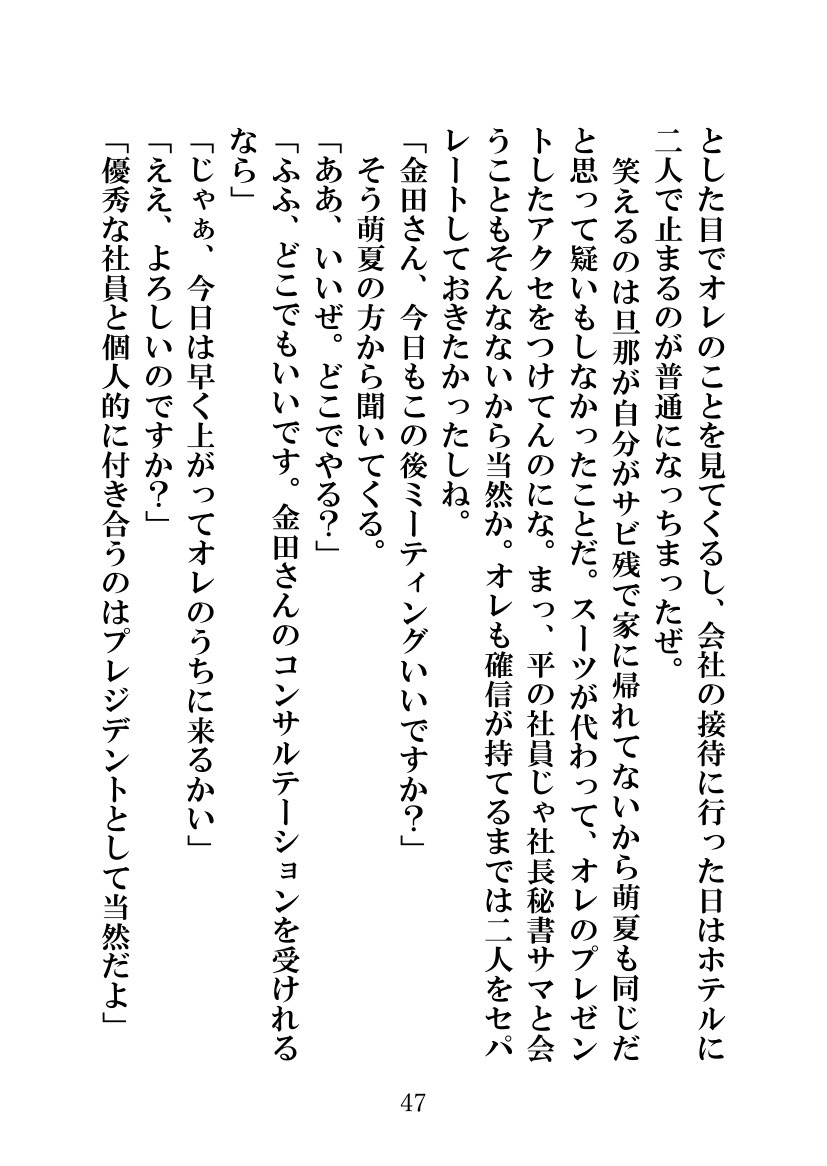 とした目でオレのことを見てくるし、会社の接待に行った日はホテルに
二人で止まるのが普通になっちまったぜ。
笑えるのは旦那が自分がサビ残で家に帰れてないから萌夏も同じだ
と思って疑いもしなかったことだ。スーツが代わって、オレのプレゼン
トしたアクセをつけてんのにな。まっ、平の社員じゃ社長秘書サマと会
うこともそんなないから当然か。オレも確信が持てるまでは二人をセパ
レートしておきたかったしね。
「金田さん、今日もこの後ミーティングいいですか?」
そう萌夏の方から聞いてくる。
「ああ、いいぜ。どこでやる?」
「ふふ、どこでもいいです。金田さんのコンサルテーションを受けれる
なら」
「じゃぁ、今日は早く上がってオレのうちに来るかい」
「ええ、よろしいのですか?」
「優秀な社員と個人的に付き合うのはプレジデントとして当然だよ」
47